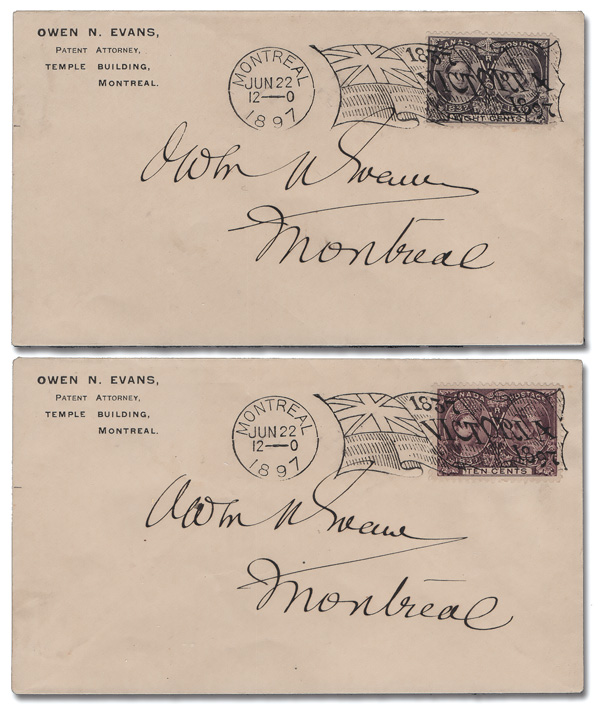 OWEN N. EVANS,
PATENT ATTORNEY,
TEMPLE BUILDING,
MONTREAL.
MONTREAL
JUN 22
12—0
1897
1837
VICTORIA
1897
CANADA POSTAGE
1837 1897
EIGHT CENTS
Owen N Evans
Montreal
OWEN N. EVANS,
PATENT ATTORNEY,
TEMPLE BUILDING,
MONTREAL.
MONTREAL
JUN 22
12—0
1897
1837
VICTORIA
1897
CANADA POSTAGE
TEN CENTS
Owen N Evans
Montreal